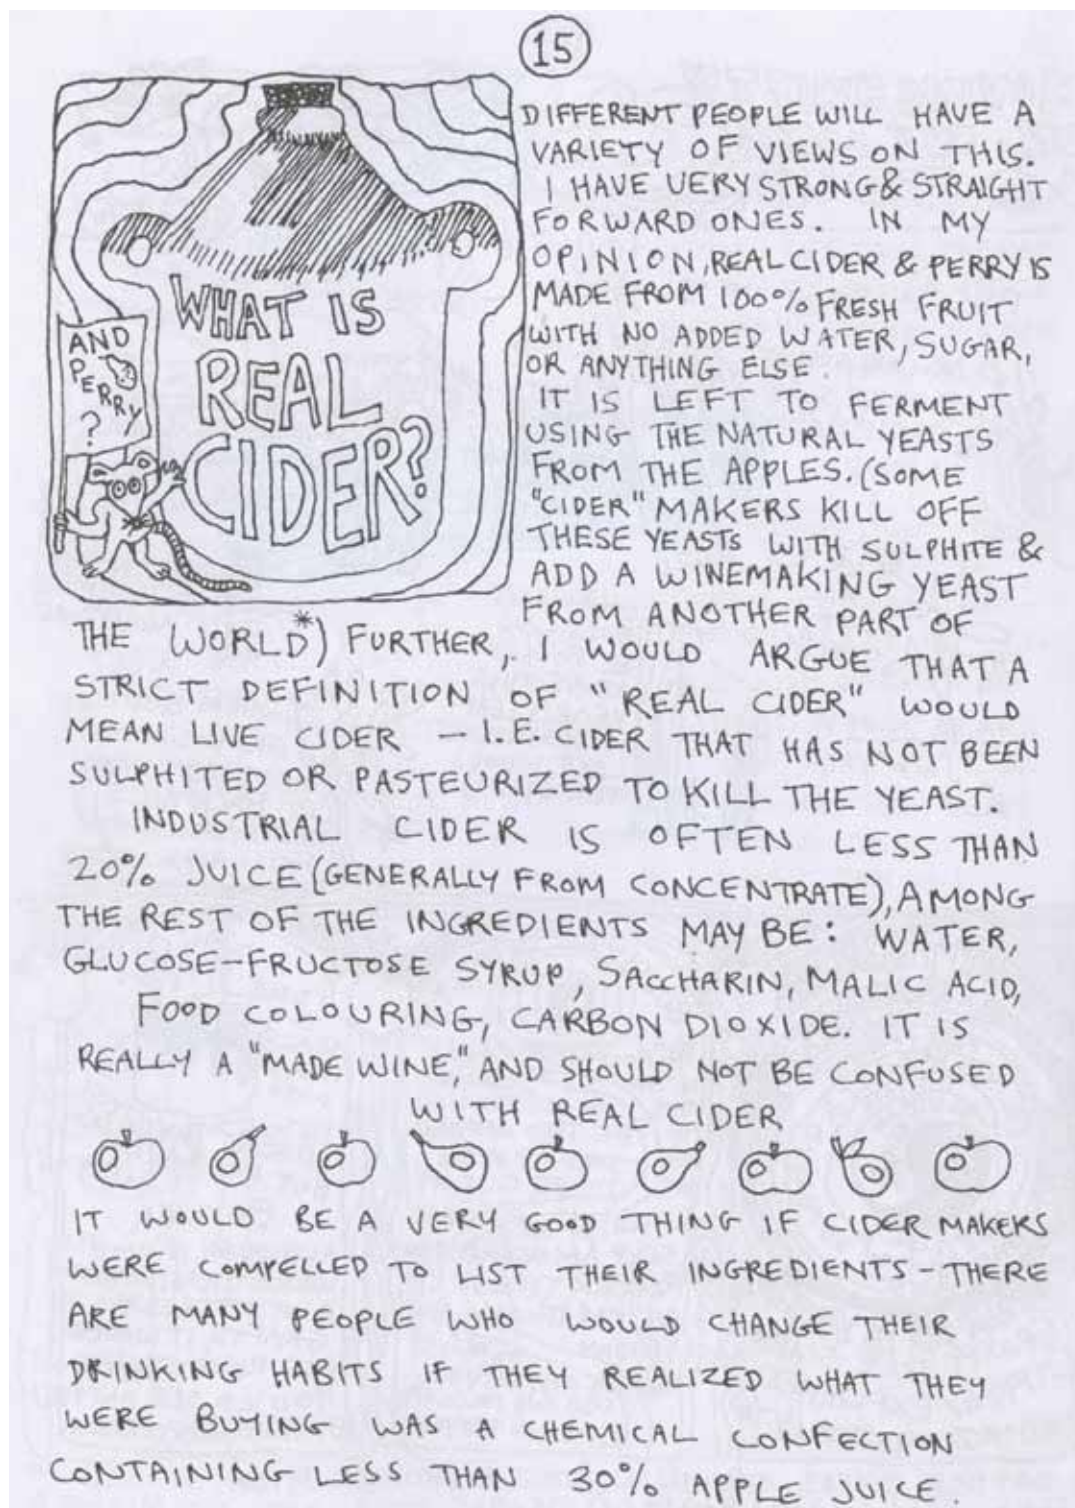 15
WHAT IS
REAL
CIDER?
AND
PERRY
?
DIFFERENT PEOPLE WILL HAVE A
VARIETY OF VIEWS ON THIS.
I HAVE VERY STRONG & STRAIGHT
FORWARD ONES. IN MY
OPINION, REAL CIDER & PERRY IS
MADE FROM 100% FRESH FRUIT
WITH NO ADDED WATER, SUGAR,
OR ANYTHING ELSE.
IT IS LEFT TO FERMENT
USING THE NATURAL YEASTS
FROM THE APPLES. (SOME
"CIDER" MAKERS KILL OFF
THESE YEASTS WITH SULPHITE &
ADD A WINEMAKING YEAST
FROM ANOTHER PART OF
THE WORLD*) FURTHER, I WOULD ARGUE THAT A
STRICT DEFINITION OF "REAL CIDER" WOULD
MEAN LIVE CIDER – I.E. CIDER THAT HAS NOT BEEN
SULPHITED OR PASTEURIZED TO KILL THE YEAST.
INDUSTRIAL CIDER IS OFTEN LESS THAN
20% JUICE (GENERALLY FROM CONCENTRATE), AMONG
THE REST OF THE INGREDIENTS MAY BE: WATER,
GLUCOSE-FRUCTOSE SYRUP, SACCHARIN, MALIC ACID,
FOOD COLOURING, CARBON DIOXIDE. IT IS
REALLY A "MADE WINE," AND SHOULD NOT BE CONFUSED
WITH REAL CIDER
IT WOULD BE A VERY GOOD THING IF CIDER MAKERS
WERE COMPELLED TO LIST THEIR INGREDIENTS – THERE
ARE MANY PEOPLE WHO WOULD CHANGE THEIR
DRINKING HABITS IF THEY REALIZED WHAT THEY
WERE BUYING WAS A CHEMICAL CONFECTION
CONTAINING LESS THAN 30% APPLE JUICE.